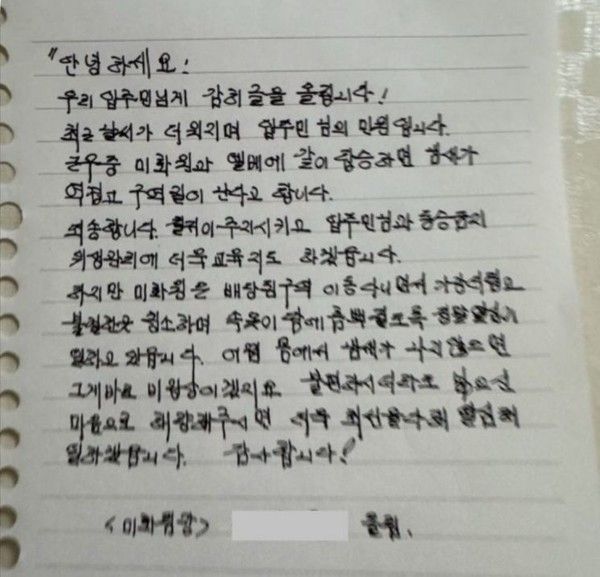 "안녕하세요!
우리 입주민님께 감히 글을 올립니다!
최근 날씨가 더워지며 입주민님의 민원입니다.
근무중 미화원과 엘베에 같이 탑승하면 땀내가
역겹고 구역질이 난다고 합니다.
죄송합니다. 환기 입주민님과 동승금지
위생관리에 더욱 교육 지도 하겠습니다.
하지만 미화원은 배당된구역 이동다니면서 가능하면
불철주야 청소하며 속옷이 땀에 흠뻑 젖도록 정말 열심히
일하고 있습니다. 이런 몸에서 땀내가 나지 않으면
그게바로 비정상이겠지요. 불편하시더라도 넓으신
마음으로 이해해주시면 더욱 최선을다해 열심히
일하겠습니다. 감사합니다!
<미화팀장> 올림.